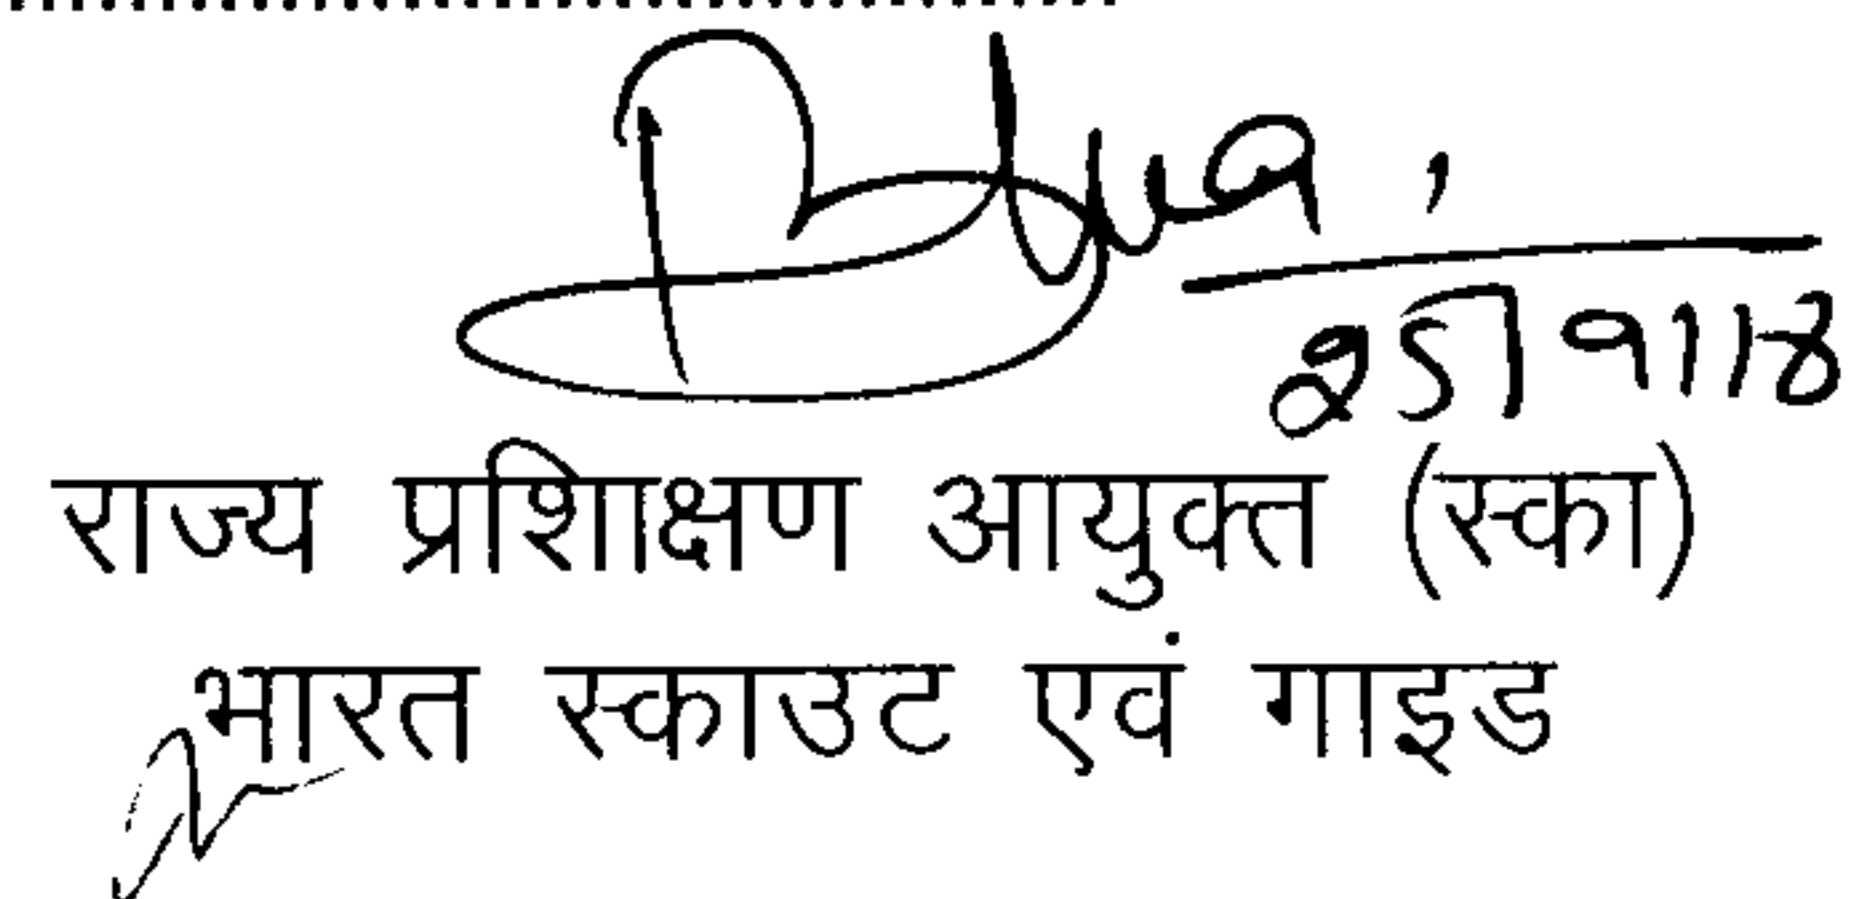 राज्य प्रशिाक्षण आयुक्त (स्का)
भारत स्काउट एवं गाइड